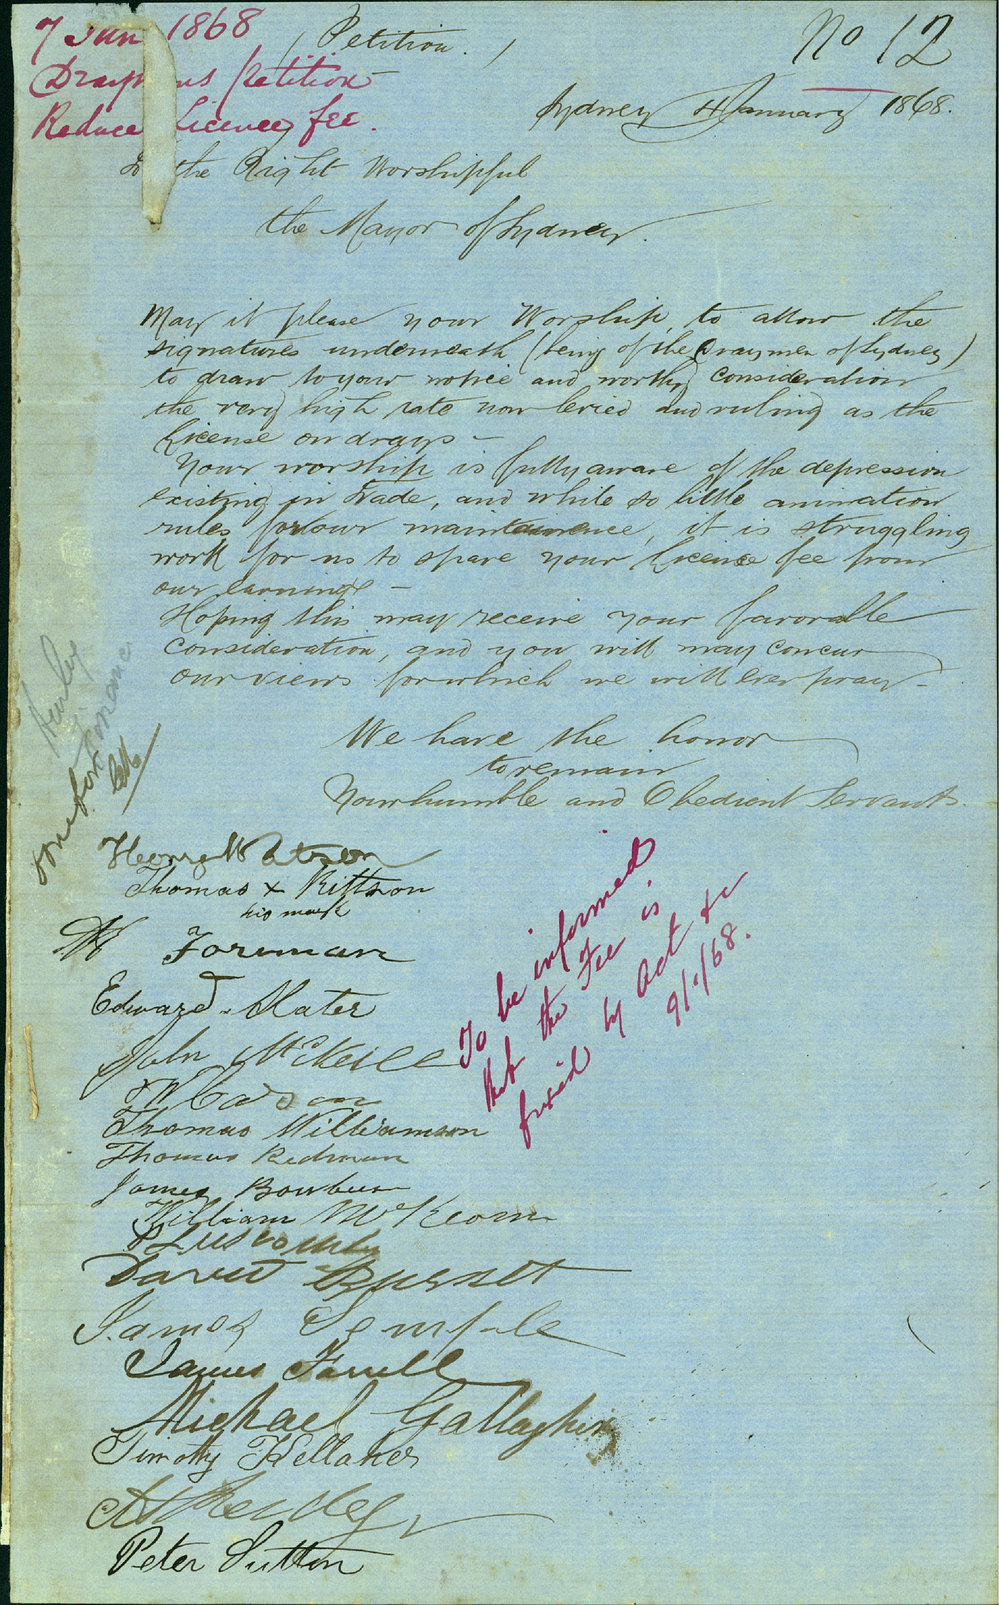 7 Jan 1868
Petition.
No 12
Draymens Petition
Reduce Licence fee.
Sydney 4 January 1868.
To the Right Worshipful
the Mayor of Sydney.
May it please your Worship, to allow the
signatures underneath (being of the Draymen of Sydney)
to draw to your notice and worthy consideration
the very high rate now levied and ruling as the
License on drays -
Your worship is fully aware of the depression
existing in Trade, and while so little animation
rules for our maintainence, it is struggling
work for us to spare your License fee from
our earnings -
Hoping this may receive your favorable
consideration, and you will may concur
our views for which we will ever pray -
We have the honor
to remain
Your humble and Obedient Servants
Thomas x Rittson
his mark
Foreman
Edward Slater
John McNeill
Thomas Williamson
Thomas Redman
James
William McKeown
P Luscomb
David Burnett
James Temple
James Farrell
Michael Gallagher
Timothy Kellaher
Peter Sutton
To be informed
that the Fee is
fixed by Act &c
9/1/68.